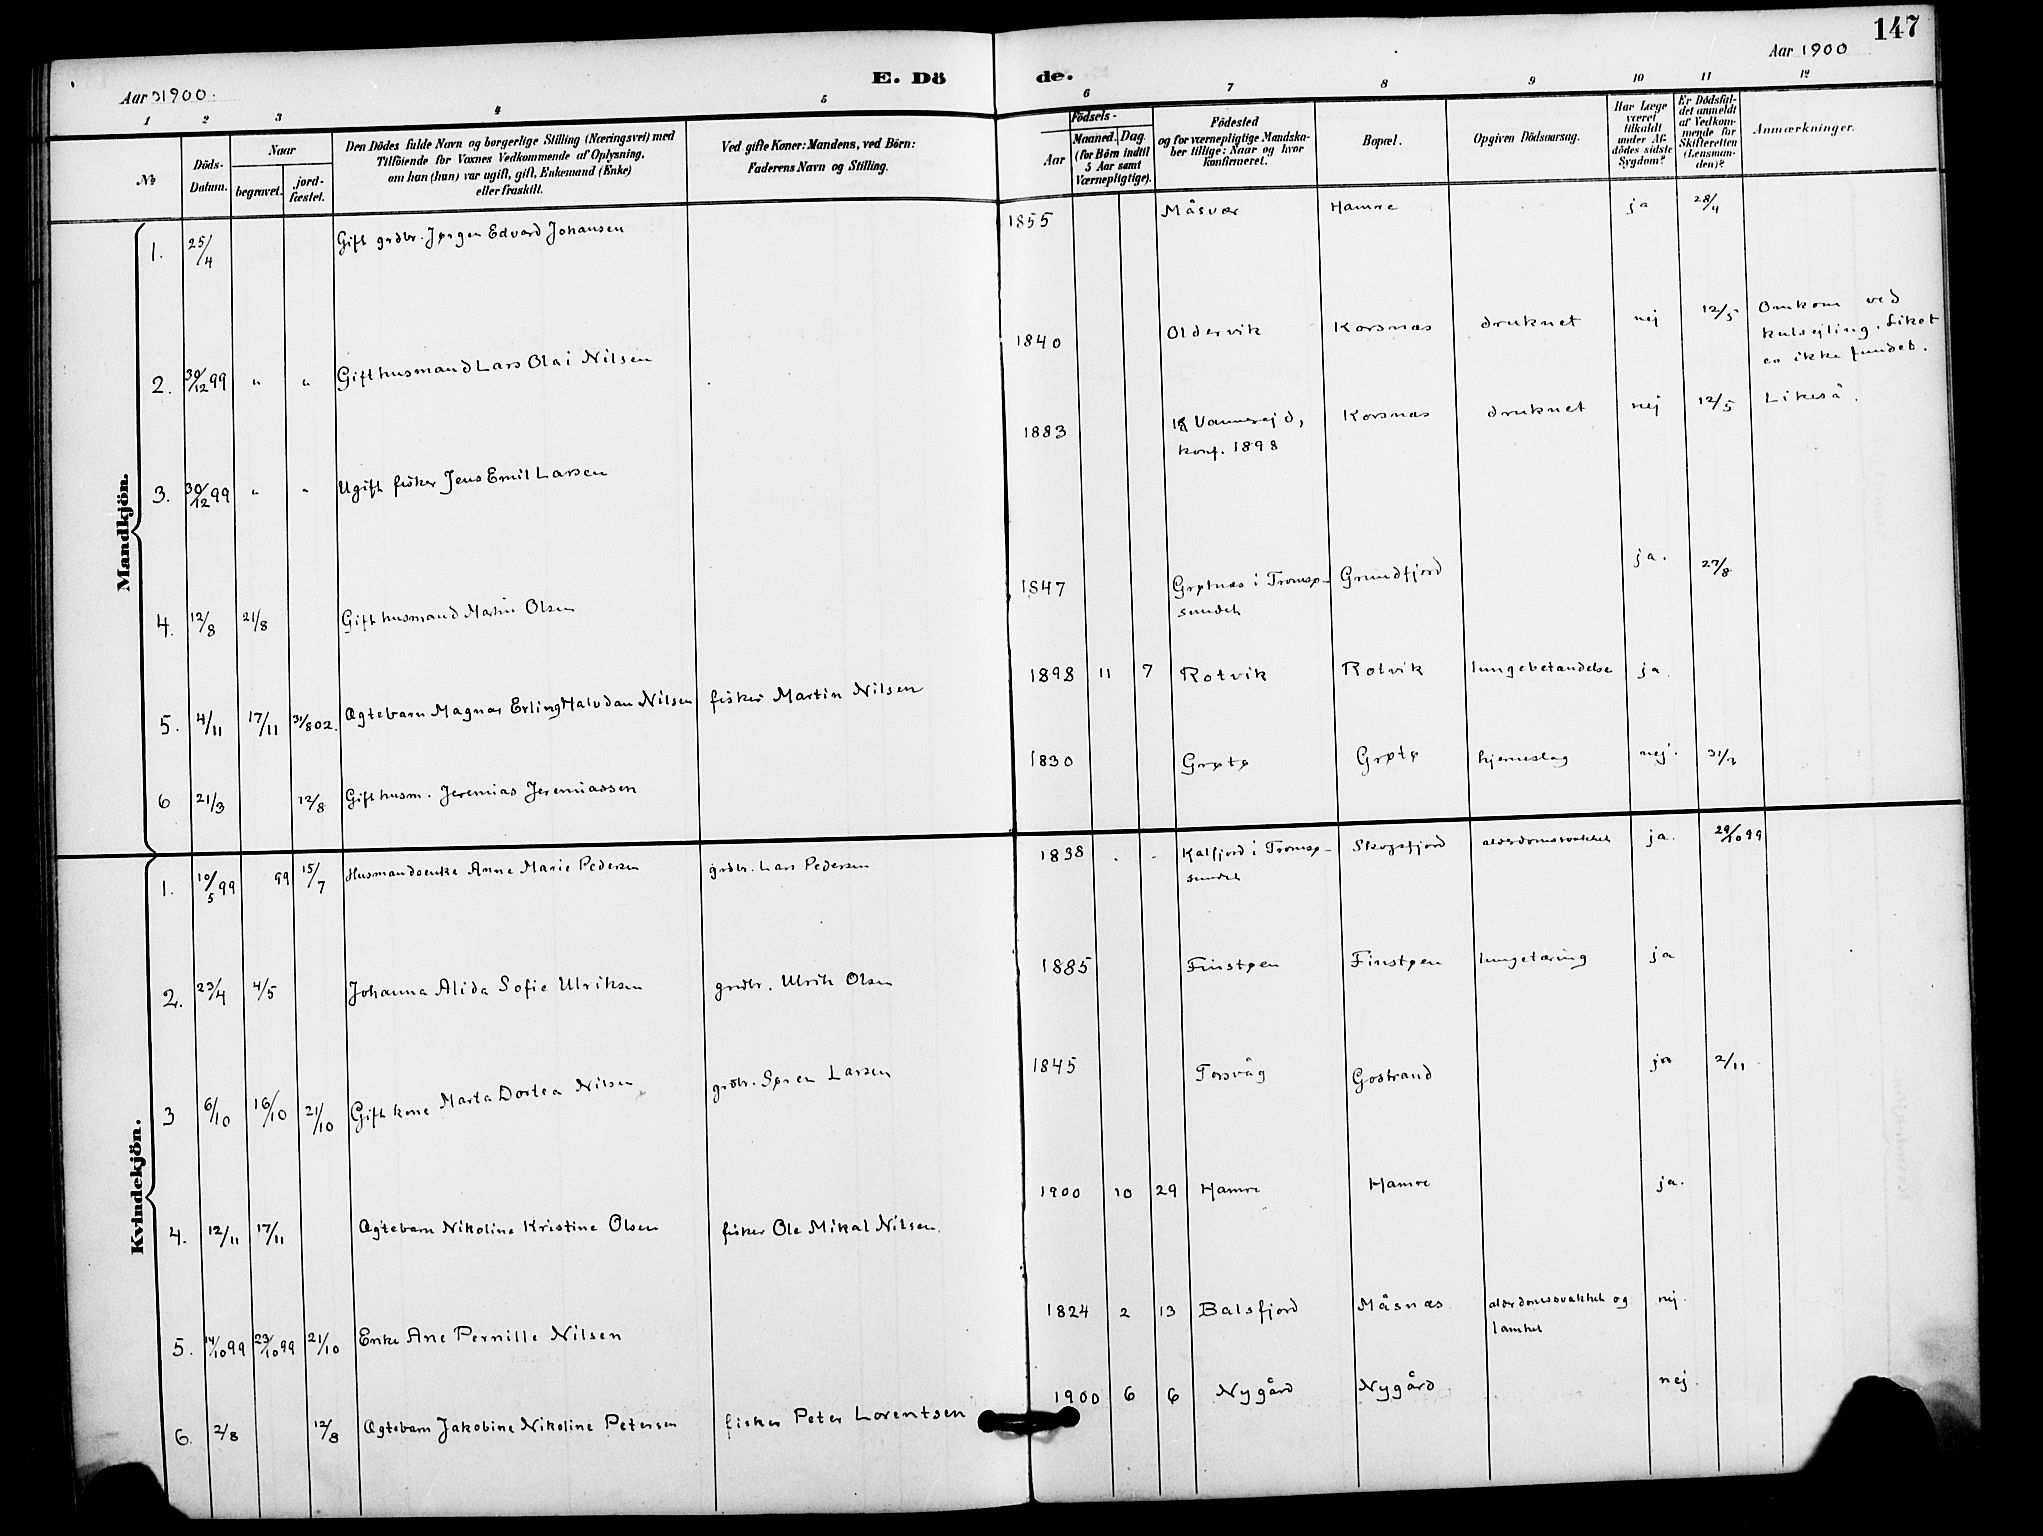 147
Aar 1900.
E. Dö
de.
Aar 1900
1 2 3 4 5 6 7 8 9 10 11 12
№
Döds-
Datum.
Naar
begravet.
jord-
fæstet.
Den Dödes fulde Navn og borgerlige Stilling (Næringsvei) med
Tilföiende for Voxnes Vedkommende af Oplysning,
om han (hun) var ugift, gift, Enkemand (Enke)
eller fraskilt.
Ved gifte Koner: Mandens, ved Börn:
Faderens Navn og Stilling.
Födsels-
Aar
Maaned. Dag.
(for Börn indtil
5 Aar samt
Værnepligtige).
Födested
og for værnepligtige Mandska-
ber tillige: Naar og hvor
konfirmeret.
Bopæl.
Opgiven Dödsaarsag.
Har Læge
været
tilkaldt
under Af-
dödes sidste
Sygdom?
Er Dödsfal-
det anmeldt
af Vedkom-
mende for
Skifteretten
(Lensman-
den)?
Anmærkninger.
Mandkjön.
1. 25/4 Gift grdbr. Jørgen Edvard Johansen 1855 Måsvær Hamre ja 28/4
2. 30/12 99 " " Gift husmand Lars Olai Nilsen 1840 Oldervik Korsnæs druknet nej 12/5 Omkom ved
kulsejling. Liket
er ikke fundet.
3. 30/12 99 " " Ugift fisker Jens Emil Larsen 1883 Vannerejd, Korsnæs druknet nej 12/5 Likeså.
konf. 1898
4. 12/8 21/8 Gift husmand Martin Olsen 1847 Grøtnæs i Tromsø- Grundfjord ja. 27/8
sundet
5. 4/11 17/11 31/8 02. Ægtebarn Magnar Erling Halvdan Nilsen fisker Martin Nilsen 1898 11 7 Rotvik Rotvik lungebetændelse ja.
6 21/3 12/8 Gift husm. Jeremias Jeremiassen 1830 Grøtø Grøtø hjerneslag nej. 31/3
Kvindekjön.
1. 10/5 99 99 15/7 Husmandsenke Anne Marie Pedersen grdbr. Lars Pedersen 1838 . . Kalfjord i Tromsø- Skogsfjord alderdomssvakhet ja. 29/10 99
sundet
2. 23/4 4/5 Johanna Alida Sofie Ulriksen grdbr. Ulrik Olsen 1885 Finstøen Finstøen lungetæring ja
3 6/10 16/10 21/10 Gift kone Marta Dortea Nilsen grdbr. Søren Larsen 1845 Torsvåg Gostrand ja 2/11
4. 12/11 17/11 Ægtebarn Nikoline Kristine Olsen fisker Ole Mikal Nilsen. 1900 10 29 Hamre Hamre ja.
5. 14/10 99 23/10 99 21/10 Enke Ane Pernille Nilsen 1824 2 13 Balsfjord Måsnæs alderdomssvakhet og nej.
lamhet
6. 2/8 12/8 Ægtebarn Jakobine Nikoline Petersen fisker Peter Lorentsen 1900 6 6 Nygård Nygård nej.